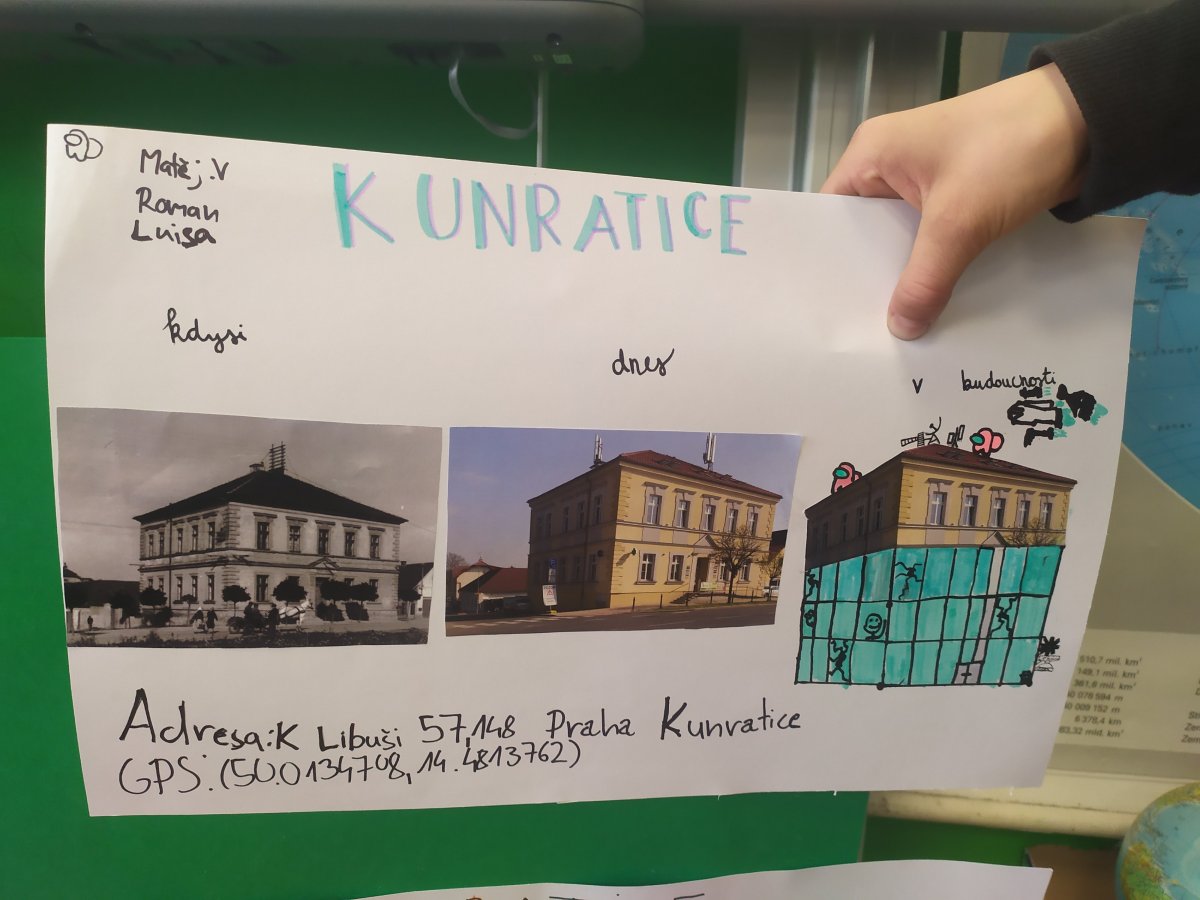 Matěj.V
Roman
Luisa
KUNRATICE
kdysi
dnes
v budoucnosti
Adresa:K Libuši 57,148 Praha Kunratice
GPS:(50.0134708,14.4813762)
510,7 mil. km²
149,1 mil. km²
361,6 mil. km²
40 009 152 m
6 378,4 km
83,32 mld. km³